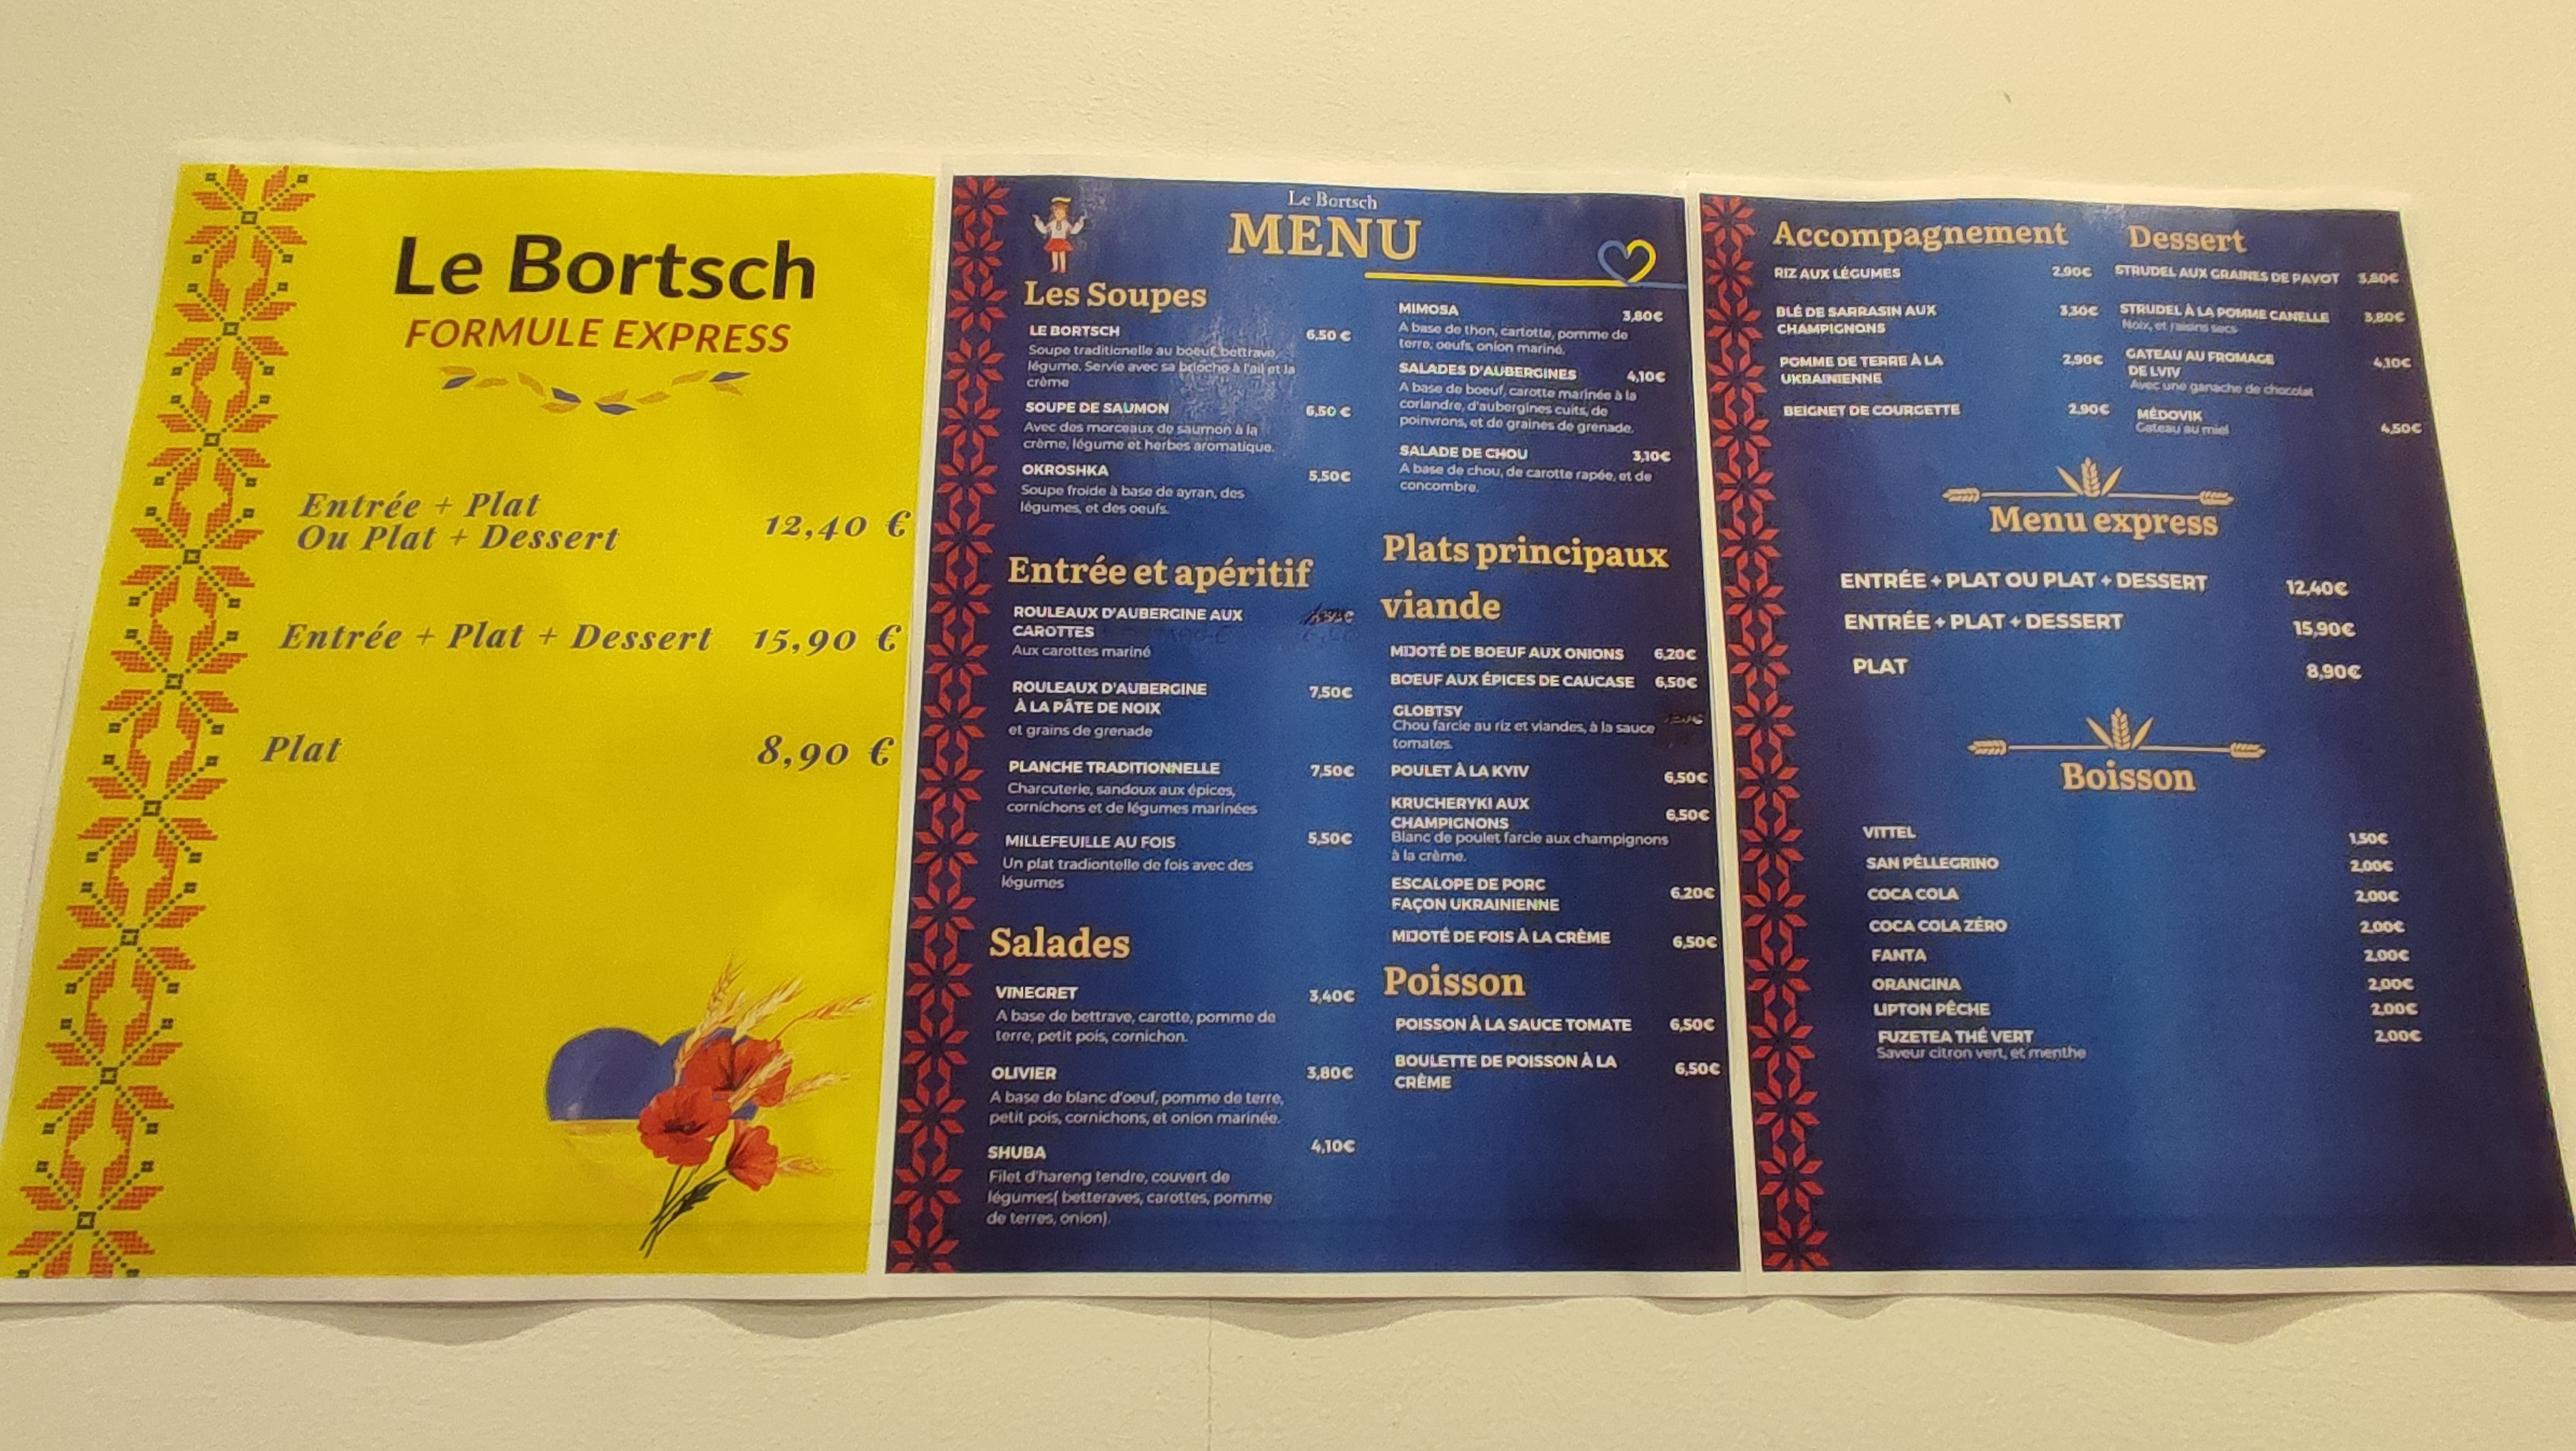 Le Bortsch
FORMULE EXPRESS
Entrée + Plat
Ou Plat + Dessert
12,40 €
Entrée + Plat + Dessert 15,90 €
Plat 8,90 €
Le Bortsch
MENU
Les Soupes
LE BORTSCH 6,50 €
Soupe traditionelle au boeuf, bettrave,
légume. Servie avec sa brioche à l'ail et la
crème
SOUPE DE SAUMON 6,50 €
Avec des morceaux de saumon à la
crème, légume et herbes aromatique.
OKROSHKA 5,50€
Soupe froide à base de ayran, des
légumes, et des oeufs.
Entrée et apéritif
ROULEAUX D'AUBERGINE AUX
CAROTTES
Aux carottes mariné
ROULEAUX D'AUBERGINE 7,50€
À LA PÂTE DE NOIX
et grains de grenade
PLANCHE TRADITIONNELLE 7,50€
Charcuterie, sandoux aux épices,
cornichons et de légumes marinées
MILLEFEUILLE AU FOIS 5,50€
Un plat tradiontelle de fois avec des
légumes
Salades
VINEGRET 3,40€
A base de bettrave, carotte, pomme de
terre, petit pois, cornichon.
OLIVIER 3,80€
A base de blanc d'oeuf, pomme de terre,
petit pois, cornichons, et onion marinée.
SHUBA 4,10€
Filet d'hareng tendre, couvert de
légumes( betteraves, carottes, pomme
de terres, onion).
MIMOSA 3,80€
A base de thon, cartotte, pomme de
terre, oeufs, onion mariné.
SALADES D'AUBERGINES 4,10€
A base de boeuf, carotte marinée à la
coriandre, d'aubergines cuits, de
poinvrons, et de graines de grenade.
SALADE DE CHOU 3,10€
A base de chou, de carotte rapée, et de
concombre.
Plats principaux
viande
MIJOTÉ DE BOEUF AUX ONIONS 6,20€
BOEUF AUX ÉPICES DE CAUCASE 6,50€
GLOBTSY
Chou farcie au riz et viandes, à la sauce
tomates.
POULET À LA KYIV 6,50€
KRUCHERYKI AUX
CHAMPIGNONS 6,50€
Blanc de poulet farcie aux champignons
à la crème.
ESCALOPE DE PORC 6,20€
FAÇON UKRAINIENNE
MIJOTÉ DE FOIS À LA CRÈME 6,50€
Poisson
POISSON À LA SAUCE TOMATE 6,50€
BOULETTE DE POISSON À LA 6,50€
CRÈME
Accompagnement
RIZ AUX LÉGUMES 2,90€
BLÉ DE SARRASIN AUX 3,30€
CHAMPIGNONS
POMME DE TERRE À LA 2,90€
UKRAINIENNE
BEIGNET DE COURGETTE 2,90€
Dessert
STRUDEL AUX GRAINES DE PAVOT 3,80€
STRUDEL À LA POMME CANELLE 3,80€
Noix, et raisins secs
GATEAU AU FROMAGE 4,10€
DE LVIV
Avec une ganache de chocolat
MÉDOVIK
Gateau au miel 4,50€
Menu express
ENTRÉE + PLAT OU PLAT + DESSERT 12,40€
ENTRÉE + PLAT + DESSERT 15,90€
PLAT 8,90€
Boisson
VITTEL 1,50€
SAN PÉLLEGRINO 2,00€
COCA COLA 2,00€
COCA COLA ZÉRO 2,00€
FANTA 2,00€
ORANGINA 2,00€
LIPTON PÊCHE 2,00€
FUZETEA THÉ VERT 2,00€
Saveur citron vert, et menthe